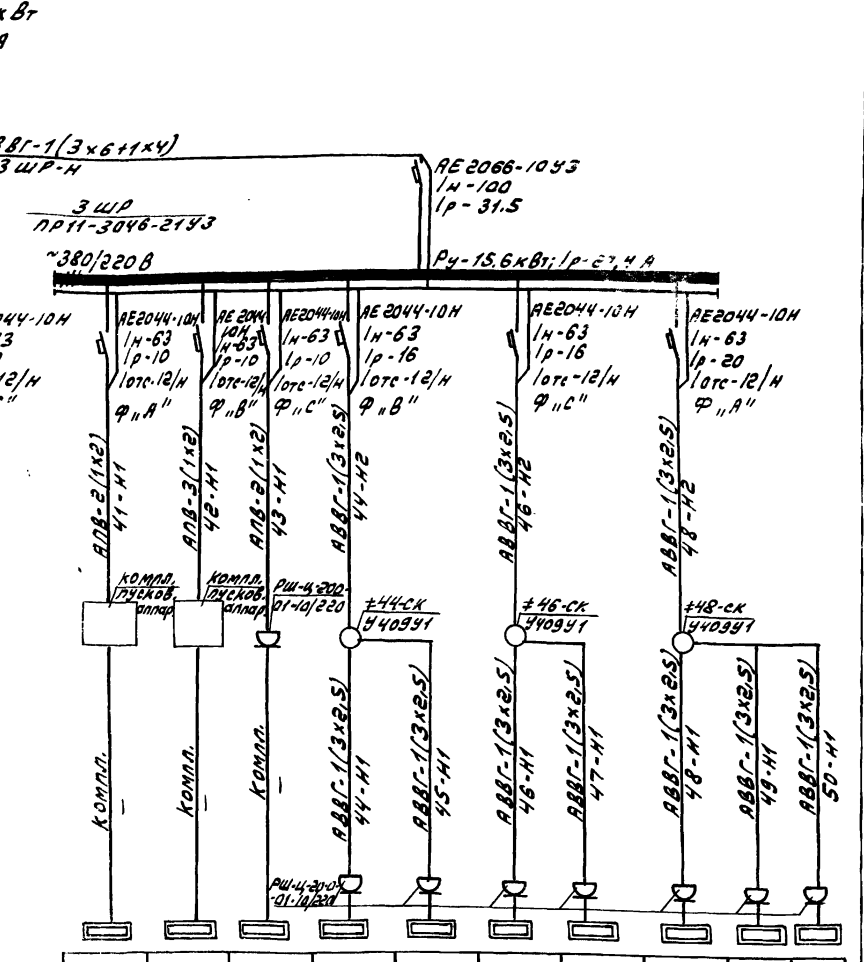 кВт
ВВГ-1(3×6+1×4)
3ШР-Н
АЕ2066-10У3
Iн-100
Iр-31.5
3ШР
ПР11-3046-21У3
~380/220В
Ру-15,6кВт; Iр-27,4А
044-10Н
АЕ2044-10Н
Iн-63
Iр-10
Iотс-12Iн
Ф„А"
АЕ2044
10Н
Iн-63
Iр-10
Iотс-12Iн
Ф„В"
АЕ2044-10Н
Iн-63
Iр-10
Iотс-12Iн
Ф„С"
АЕ2044-10Н
Iн-63
Iр-16
Iотс-12Iн
Ф„В"
АЕ2044-10Н
Iн-63
Iр-16
Iотс-12Iн
Ф„С"
АЕ2044-10Н
Iн-63
Iр-20
Iотс-12Iн
Ф„А"
АПВ-2(1×2)
41-Н1
АПВ-3(1×2)
42-Н1
АПВ-2(1×2)
43-Н1
АВВГ-1(3×2,5)
44-Н2
АВВГ-1(3×2,5)
46-Н2
АВВГ-1(3×2,5)
48-Н2
компл.
пусков.
аппар.
компл.
пусков.
аппар.
РШ-Ц-20-0-
01-10/220
#44-СК
У409У1
#46-СК
У409У1
#48-СК
У409У1
КОМПЛ.
КОМПЛ.
КОМПЛ.
АВВГ-1(3×2,5)
44-Н1
АВВГ-1(3×2,5)
45-Н1
АВВГ-1(3×2,5)
46-Н1
АВВГ-1(3×2,5)
47-Н1
АВВГ-1(3×2,5)
48-Н1
АВВГ-1(3×2,5)
49-Н1
АВВГ-1(3×2,5)
50-Н1
РШ-Ц-20-0-
-01-10/220